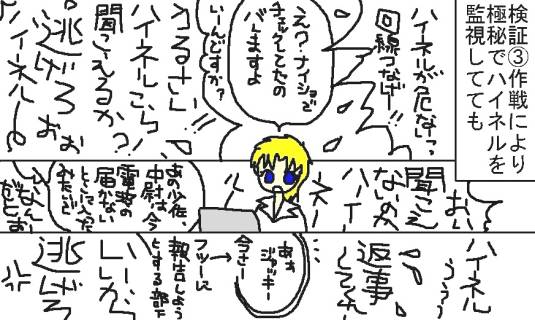 検証③作戦により
極秘でハイネルを
監視してても
ハイネルが危ないっ
回線つなげー!!
えっ?ナイショで
チェックしてたの
バレますよ
いーんですか?
うるさい
ハイネルこらい
聞こえるか?
逃げろおぉ
ハイネルー
おーい
聞こえ
ないのか
ハーイ
ネルー
あの少佐
中尉は今
電波の
届かない
とこに入った
みたいで
なんだとお
ハイネル
ううう
返事
しろぇ
あぁ
ジャッキー
今さー
フツーに
報告しよう
とする部下
いーから
逃げろ